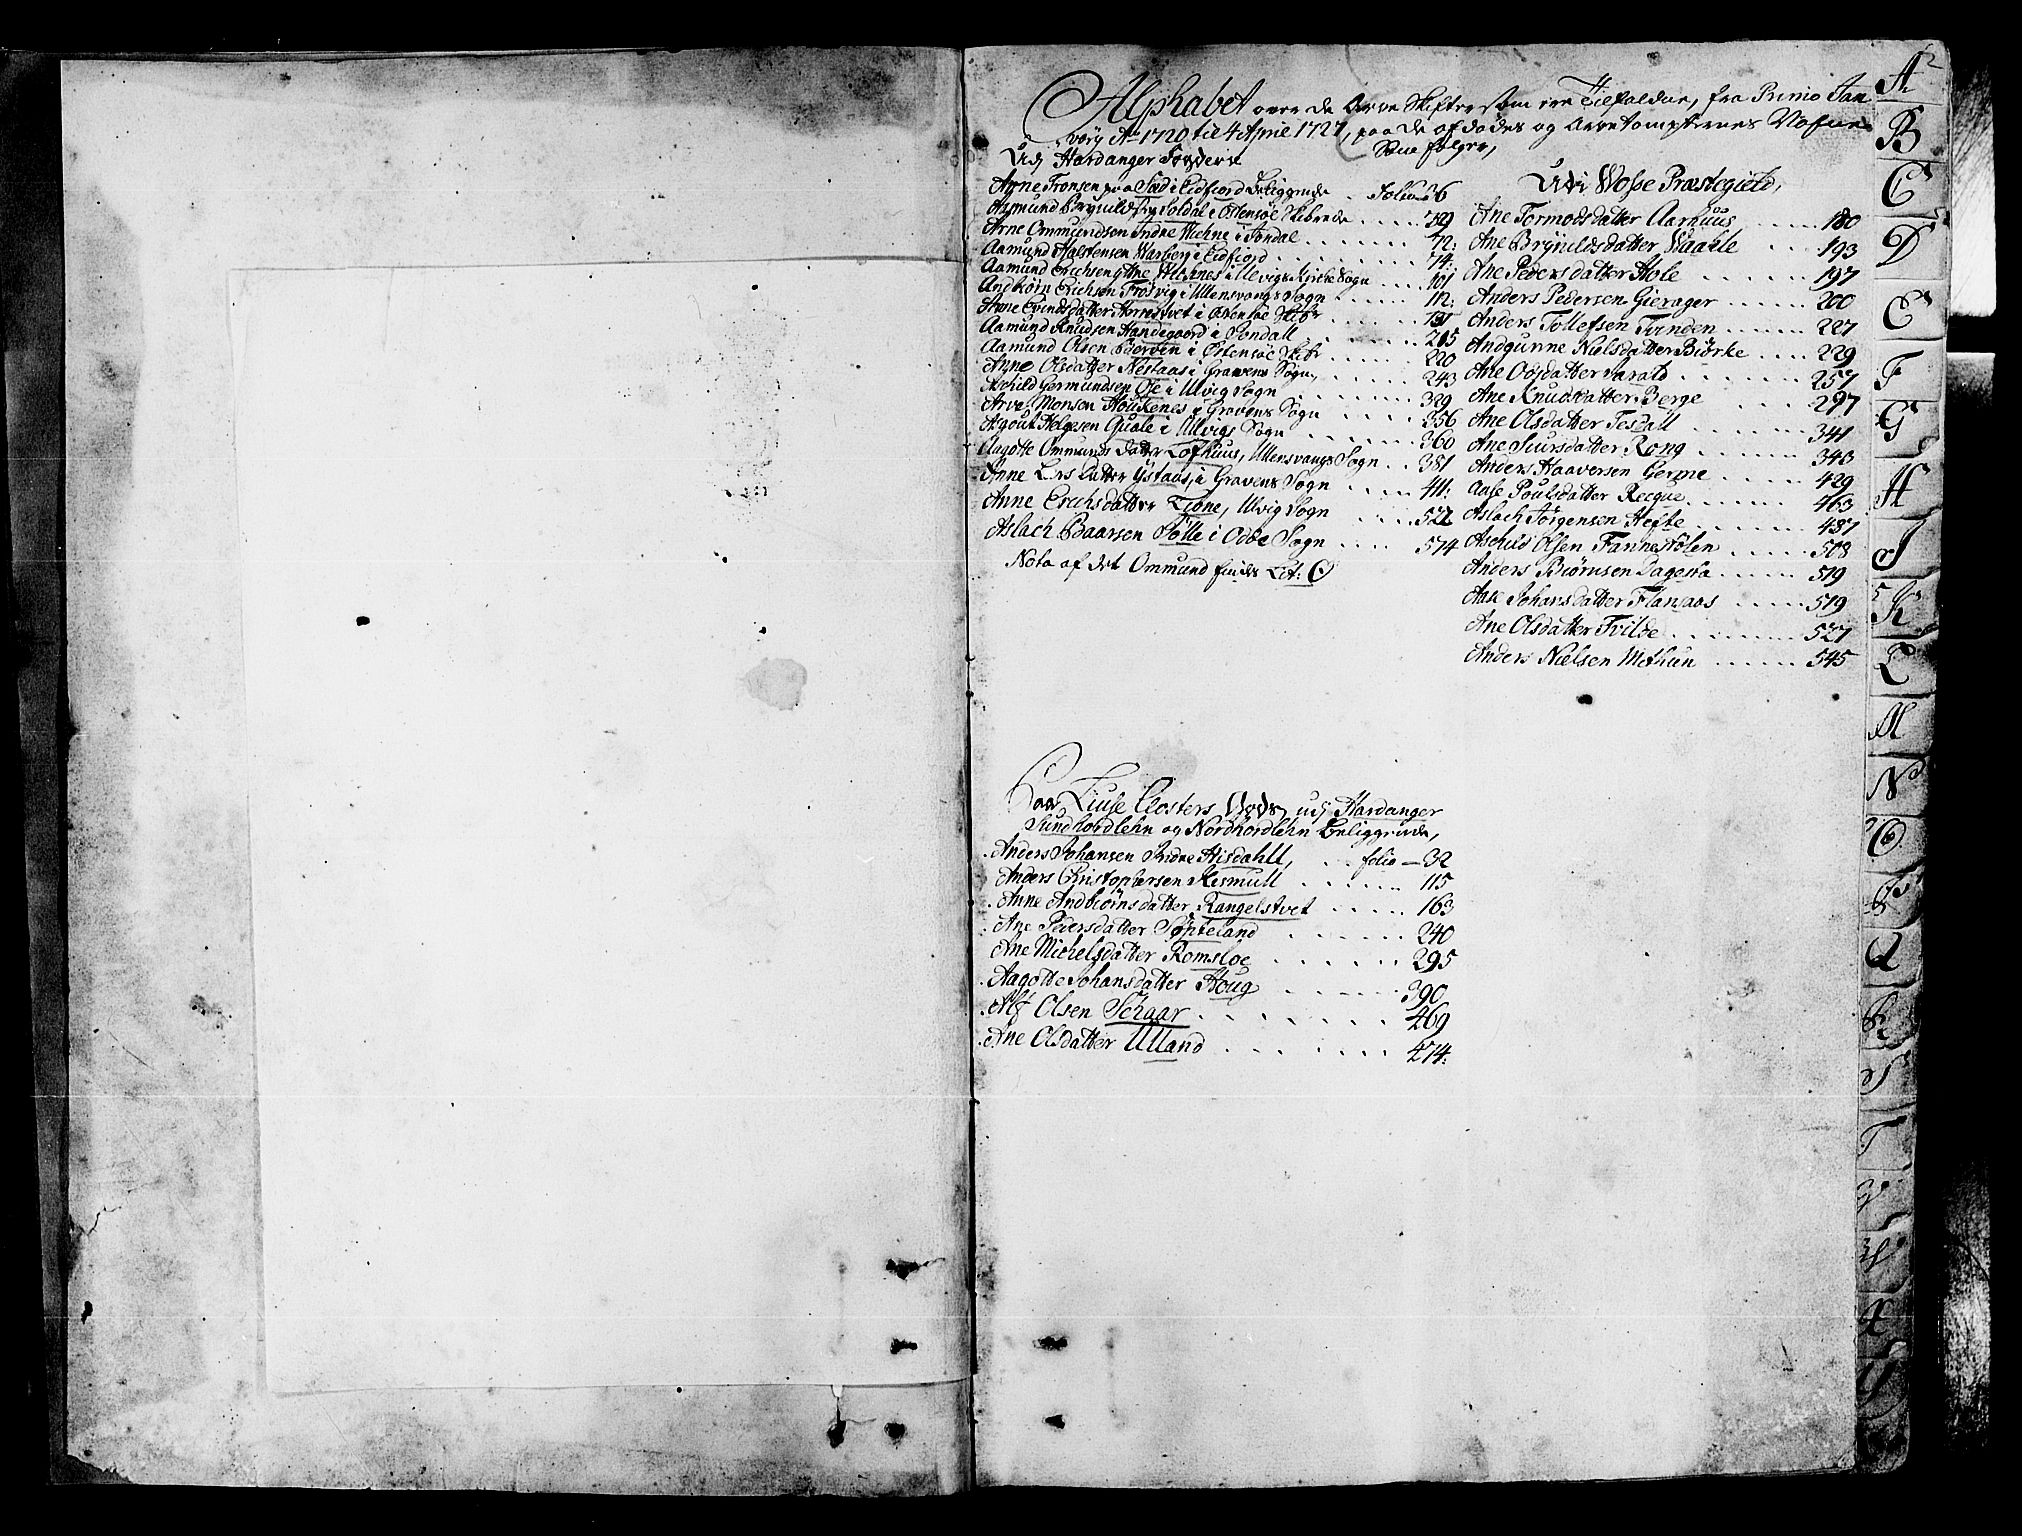 Alphabet over de Arve Skifter som ere Tilfaldne, fra Primo Jan
vory Ao 1720 til 4 April 1727, paa de afdødes og Arvetompternes Nafne
Som følger,
Udj Hardanger Fogderi
Arne Tronsen paa Sæd i Eidfiord beliggende . Folio 26
Asmund Brynildsen Soldal i Østensøe Skibrede . . . 39
Arne Ommundsen Indre Wiche i Jondal . . . . . . . 72:
Aamund Halstensen Warberg i Eidfiord . . . . . . . 74:
Aamund Erichsen Ytre Alsnes i Ulvigs Kirke Sogn . . . . 101
Angbiørn Erichsen Trosvig i Ullensvangs Sogn . . . . 112:
Anne Evindsdatter Norrestvet i Østensøe Skibr . . . .
Aamund Knudsen Handegaard i Jondall . . . . . . 215
Aamund Olsen Berven i Østensøe Skibr . . . . . . 220
Anne Olsdatter Nestaas i Gravens Sogn, . . . . . . 243
Aschild Germundsen Ose i Ulvig Sogn . . . . . . 329
Arve Monsen Houkenes i Gravens Sogn . . . . . 356
Asgout Helgesen Quale i Ulvigs Sogn . . . . . . . 360
Aagotte Ommunds datter Lofthuus, Ullensvangs Sogn . . 381
Anne Lars datter Ystaas, i Gravens Sogn . . . . . 411:
Anne Erichsdatter Tione, Ulvig Sogn . . . . . 522
Aslach Baarsen Jølle i Odde Sogn . . . . 574
Nota af det Ommund findes Lit: O
Udi Wosse Præstegield,
Ane Tormodsdatter Aarhuus . . . . . 180
Ane Brynildsdatter Waarle . . . . 193
Ane Pedersdatter Hole . . . . . . 197
Anders Pedersen Gierager . . . . . . . 200
Anders Tollefsen Tvinden . . . . . . . 227
Andgunne Nielsdatter Biørke . . . . 229
Ane Odsdatter Varald . . . . . . . 257
Ane Knudsdatter Berge . . . . 297
Ane Olsdatter Tesdall . . . . . . . 341
Ane Siursdatter Rong . . . . . . . 343
Anders Haaversen Gierme . . . . . . 429
Aase Poulsdatter Recque . . . . . . . 463
Aslach Jørgensen Hefte . . . . . . . 487
Aschild Olsen Fannestølen . . . . . . 508
Anders Biørnsen Dagesta . . . . . . 519
Aase Johansdatter Flansaas . . . . . 519
Ane Olsdatter Tvilde . . . . . . . . . 527
Anders Nielsen Methun . . . . . . 545
Paa Liuse Closters Gods udj Hardanger
Sundhordlehn og Nordhordlehn beliggende,
Anders Johansen Indre Hisdahll, . . folio — 32
Anders Christophersen Skismull . . . . . . . 115
Anne Andbiørnsdatter Rangelstvet . . . . . 163
Ane Pedersdatter Søfteland . . . . . . 240
Ane Michelsdatter Romsloe . . . . . . 295
Aagotte Johansdatter Houg . . . . . . 390
Alf Olsen Schaar . . . . . . . . 469
Ane Olsdatter Ulland . . . . . . . 474:
A 2
B
C
D
E
F
G
H
I
K
L
M
N
O
P
Q
R
S
T
V
W
X
Y